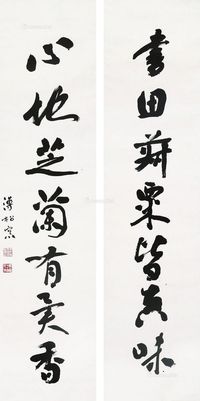 書田菽粟皆真味
心地芝蘭有異香
溥松窗